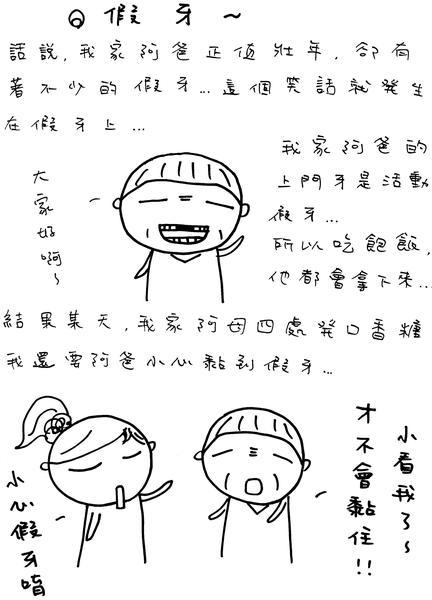 ◎假牙~
話說,我家阿爸正值壯年,卻有
著不少的假牙...這個笑話就發生
在假牙上...
大家好啊~
我家阿爸的
上門牙是活動
假牙...
所以吃飽飯,
他都會拿下來...
結果某天,我家阿母四處發口香糖
我還要阿爸小心黏到假牙...
小心假牙唷
小看我了~
才不會黏住!!